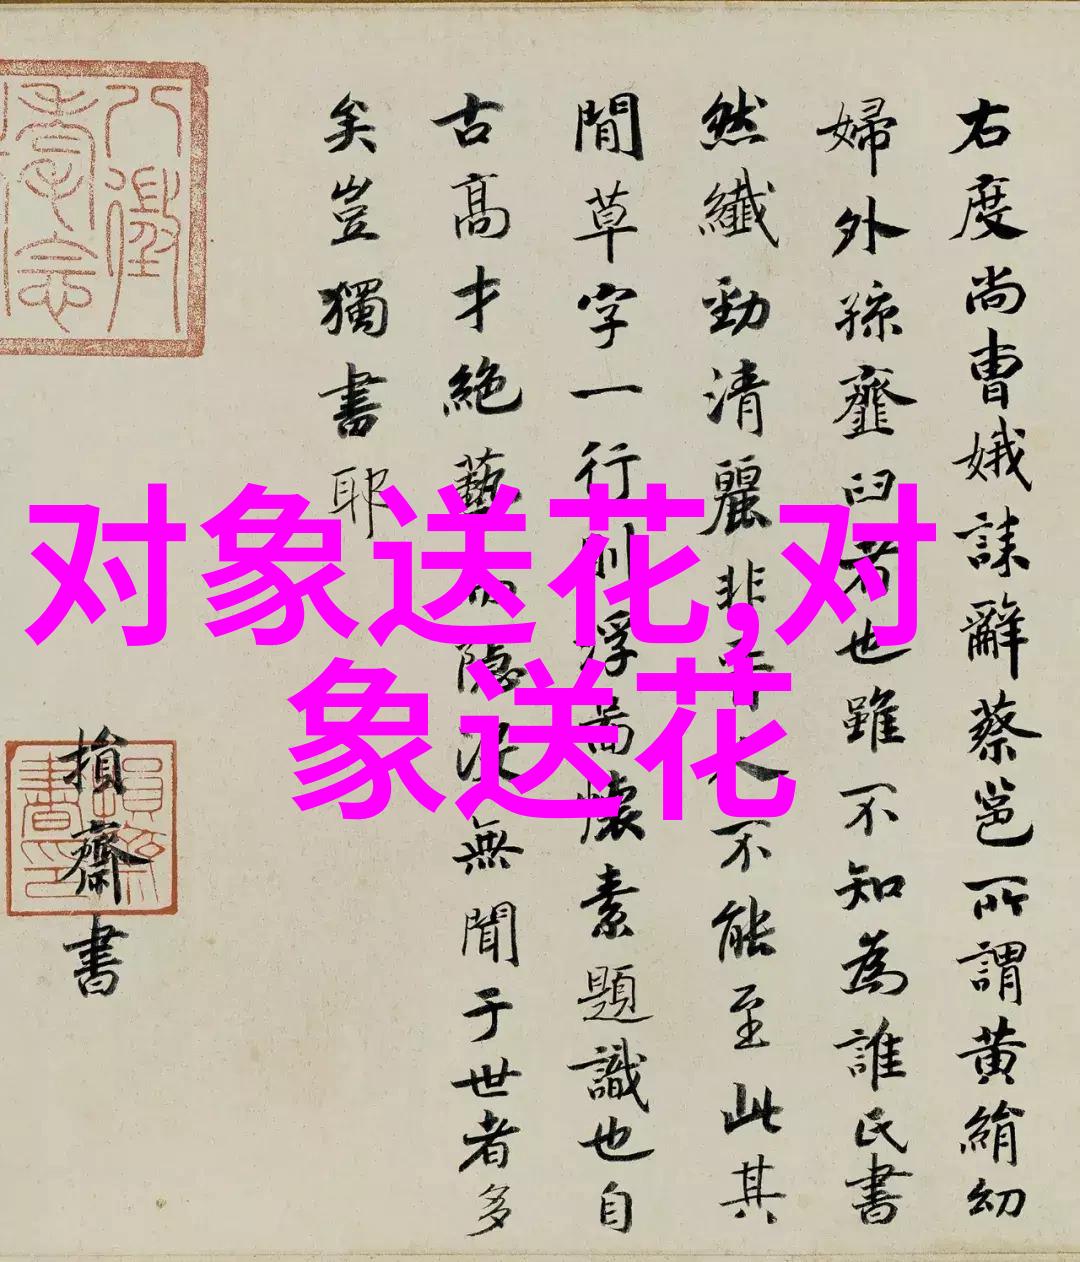 右度尚曹娥誄辭蔡邕所謂黄絹幼
婦外孫齏臼者也雖不知為誰氏書
然纖勁清麗非晉人不能至此其
間草字一行則浮圖懷素題識也自
古高才絶藝而隱沒無聞于世者多
矣豈獨書耶
損齋書
对象送花,对
象送花